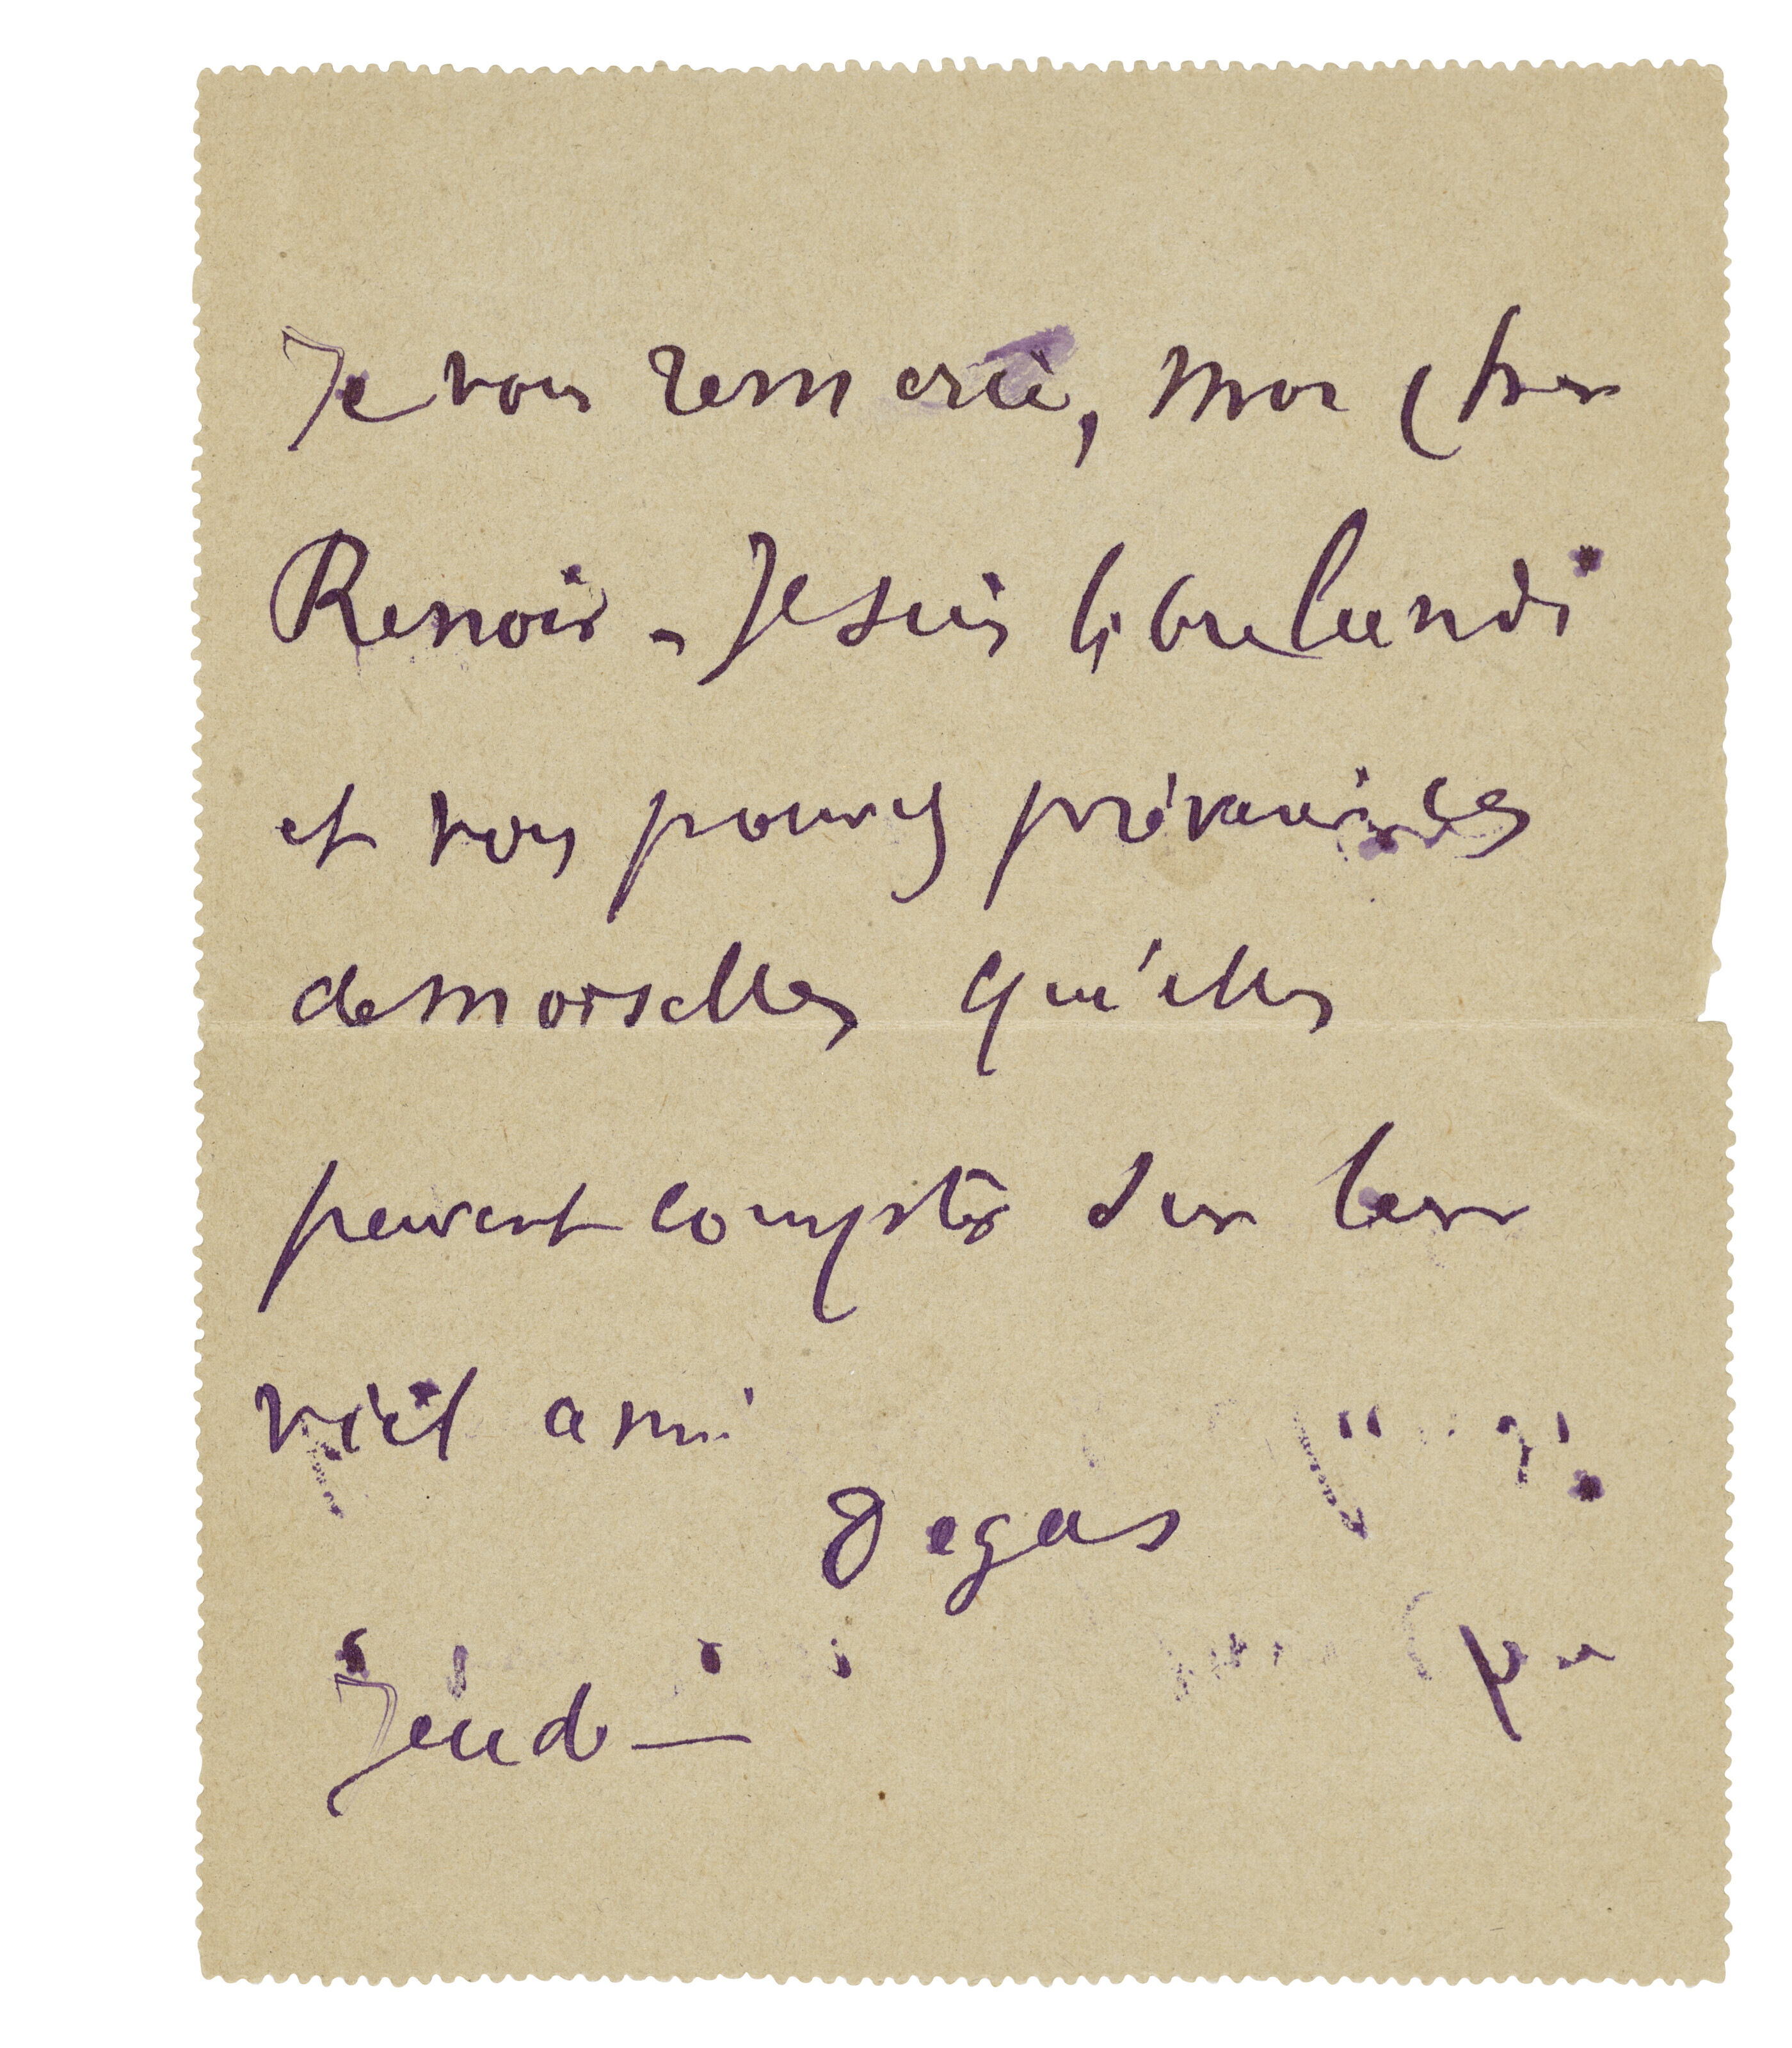 Je vous remercie, mon cher
Renoir - Je suis libre lundi
et vous pouvez prévenir ces
demoiselles qu'elles
peuvent compter sur leur
vieil ami
Degas
Jeudi